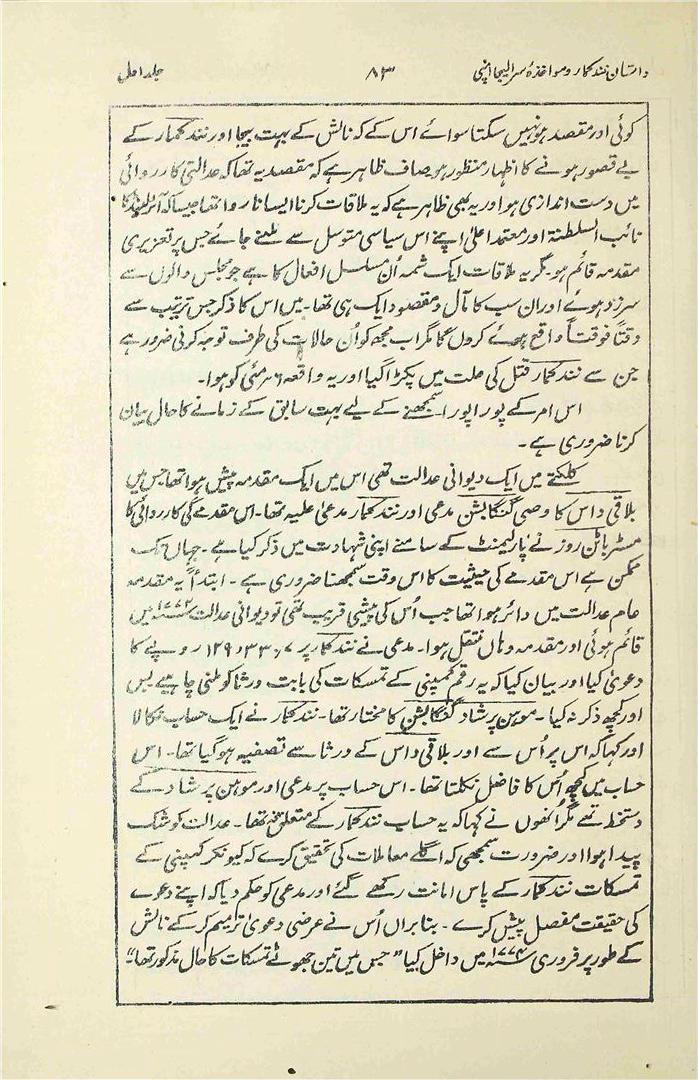 داستان نندکمار و مواخذۂ سر الیجا امپی ۸۳ جلد اول
کوئی اور مقصد ہو نہیں سکتا سوائے اس کے کہ نالش کے بہت بیجا اور نند کمار کے
بے قصور ہونے کا اظہار منظور ہو صاف ظاہر ہے کہ مقصد یہ تھا کہ عدالتی کارروائی
میں دست اندازی ہو اور یہ بھی ظاہر ہے کہ یہ ملاقات کرنا ایسا ناروا تھا جیسا کہ آئرلینڈ کا
نائب السلطنۃ اور معتمد اعلیٰ اپنے اس سیاسی متوسل سے ملنے جائے جس پر تعزیری
مقدمہ قائم ہو۔ مگر یہ ملاقات ایک شمہ اُن مسلسل افعال کا ہے جو مجلس والوں سے
سرزد ہوئے اور ان سب کا مآل و مقصود ایک ہی تھا۔ میں اس کا ذکر جس ترتیب سے
وقتاً فوقتاً واقع ہوئے کروں گا مگر اب مجھ کو اُن حالات کی طرف توجہ کرنی ضرور ہے
جن سے نند کمار قتل کی علت میں پکڑا گیا اور یہ واقعہ ۶ر مئی کو ہوا۔
اس امر کے پورا پورا سمجھنے کے لیے بہت سابق کے زمانے کا حال بیان
کرنا ضروری ہے۔
کلکتے میں ایک دیوانی عدالت تھی اس میں ایک مقدمہ پیش ہوا تھا جس میں
بلاقی داس کا وصی گنگابشن مدعی اور نند کمار مدعیٰ علیہ تھا۔ اس مقدمے کی کارروائی کا
مسٹر باٹن روز نے پارلیمنٹ کے سامنے اپنی شہادت میں ذکر کیا ہے۔ جہاں تک
ممکن ہے اس مقدمے کی حیثیت کا اس وقت سمجھنا ضروری ہے۔ ابتداً یہ مقدمہ
عام عدالت میں دائر ہوا تھا جب اُس کی پیشی قریب تھی تو دیوانی عدالت ۱۷۷۲ء میں
قائم ہوئی اور مقدمہ وہاں منتقل ہوا۔ مدعی نے نند کمار پر روپے کا
دعویٰ کیا اور بیان کیا کہ یہ رقم کمپنی کے تمسکات کی بابت ورثا کو ملنی چاہیے بس
اور کچھ ذکر نہ کیا۔ موہن پرشاد گنگابشن کا مختار تھا۔ نند کمار نے ایک حساب نکالا
اور کہا کہ اس پر اُس سے اور بلاقی داس کے ورثا سے تصفیہ ہو گیا تھا۔ اس
حساب میں کچھ اُس کا فاضل نکلتا تھا۔ اس حساب پر مدعی اور موہن پرشاد کے
دستخط تھے مگر انھوں نے کہا کہ یہ حساب نند کمار کے متعلق نہ تھا۔ عدالت کو شک
پیدا ہوا اور ضرورت سمجھی کہ اگلے معاملات کی تحقیق کرے کہ کیونکر کمپنی کے
تمسکات نند کمار کے پاس امانت رکھے گئے اور مدعی کو حکم دیا کہ اپنے دعوے
کی حقیقت مفصل پیش کرے۔ بنابراں اُس نے عرضی دعویٰ ترمیم کر کے نالش
کے طور پر فروری ۱۷۷۴ء میں داخل کیا ”جس میں تین جھوٹے تمسکات کا حال مذکور تھا۔“